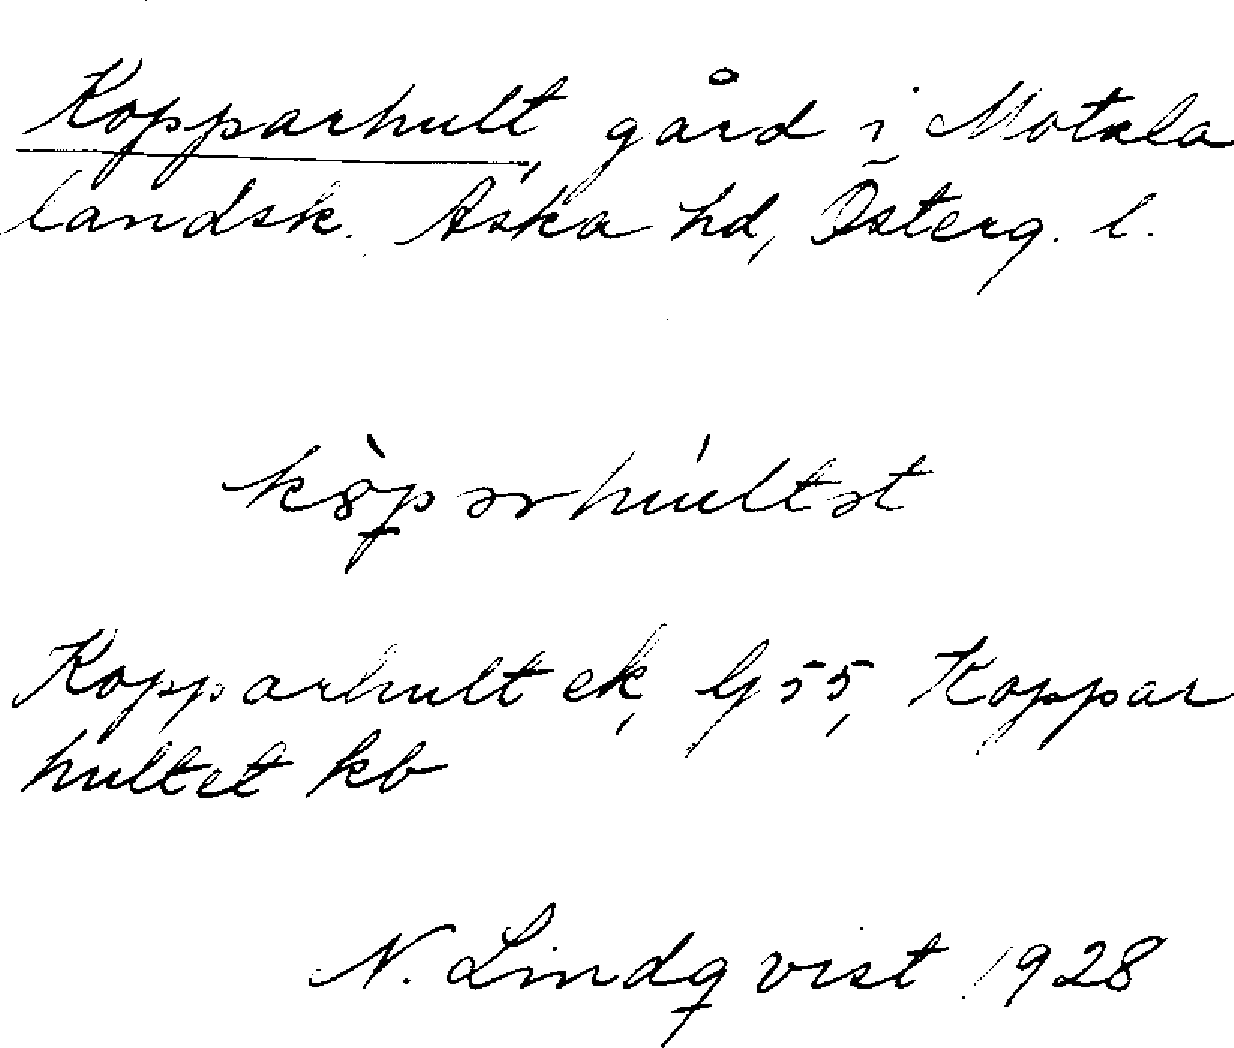 Kopparhult, gård i Motala
landsk. Aska hd, Österg. l.
kòpərhúltət
Kopparhult ek, G 55, Koppar
hultet kb
N. Lindqvist 1928